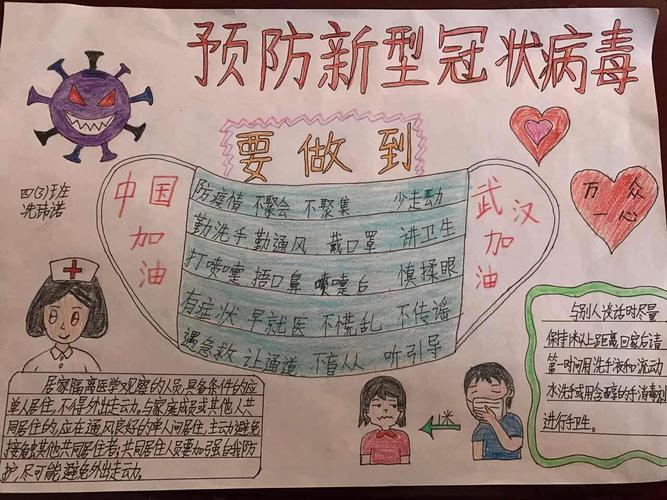 预防新型冠状病毒
要做到
四(3)班
冼玮诺
中国
加油
武汉
加油
万众
一心
防疫情 不聚会 不聚集 少走动
勤洗手 勤通风 戴口罩 讲卫生
打喷嚏 捂口鼻 喷嚏后 慎揉眼
有症状 早就医 不慌乱 不传谣
遇急救 让通道 不盲从 听引导
居家隔离医学观察的人员,具备条件的应
单人居住,不得外出走动。与家庭成员或其他人共
同居住的,应在通风良好的单人间居住,主动避免
接触其他共同居住者;共同居住人员要加强自我防
护,尽可能避免外出走动。
1米
与别人谈话时尽量
保持1米以上距离回家后请
第一时间用洗手液和流动
水洗手或用含醇的手消毒剂
进行手卫生。